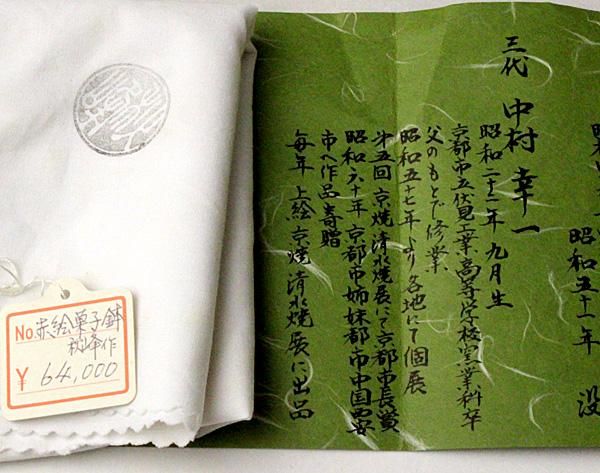 昭和五十一年 没
三代 中村 幸一
昭和二十二年 九月生
京都市立伏見工業高等学校窯業科卒
父のもとで修業
昭和五十七年より各地にて個展
第五回 京焼清水焼展にて京都市長賞
昭和六十年 京都市姉妹都市中国西安
市へ作品寄贈
毎年 上絵京焼清水焼展に出品
No.赤絵菓子鉢
秋峰作
¥64,000